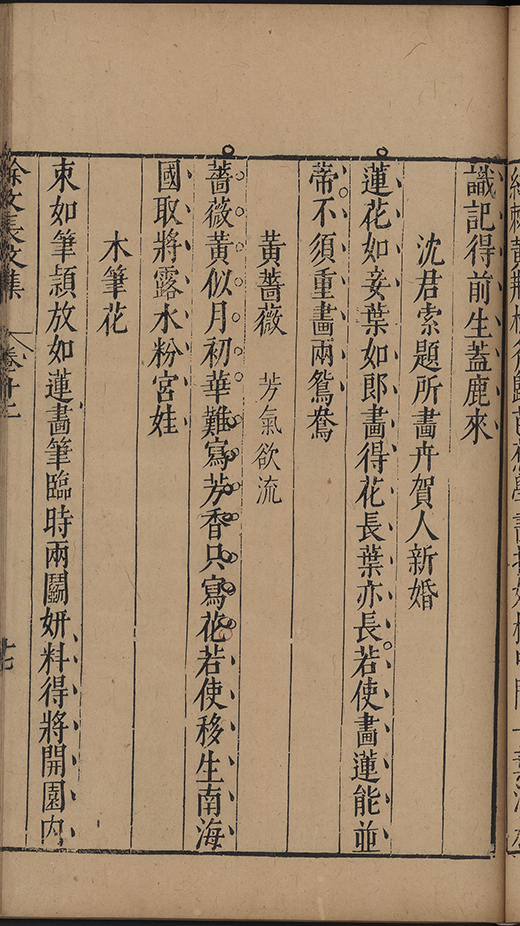 識記得前生蓋鹿來
沈君索題所畫卉賀人新婚
蓮花如妾葉如郎畫得花長葉亦長若使畫蓮能並
蒂不須重畫兩鴛鴦
黃薔薇 芳氣欲流
薔薇黃似月初華難寫芳香只寫花若使移生南海
國取將露水粉宮娃
木筆花
束如筆頴放如蓮畫筆臨時兩鬬妍料得將開園内
徐文長文集 卷十二 十七